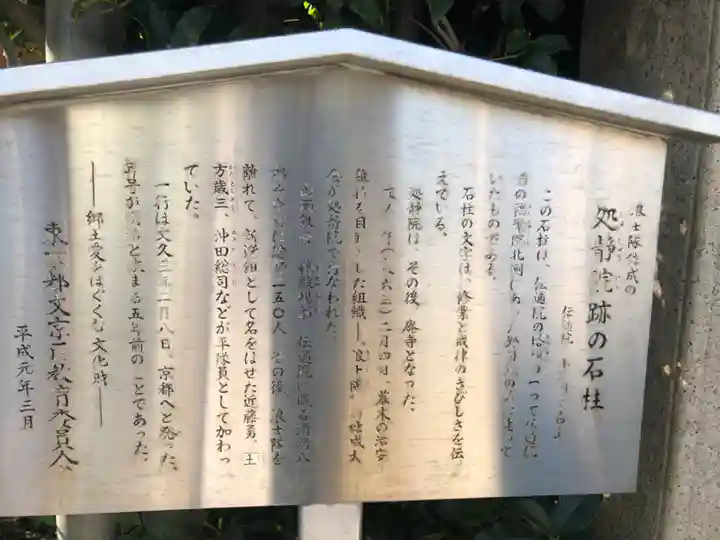 浪士隊結成の
処静院跡の石柱
伝通院
この石柱は、伝通院の塔頭の一つで伝通院
前の福聚院北側にあった処静院の前に建って
いたものである。
石柱の文字は、修業と戒律のきびしさを伝
えている。
処静院は、その後、廃寺となった。
文久三年(一八六三)二月四日、幕末の治安
維持を目的とした組織 ― “浪士隊”の結成大
会が処静院で行なわれた。
山岡鉄舟、鵜殿鳩翁、伝通院に眠る清河八
郎を中心に総勢二五〇人、その後、浪士隊を
離れて、新選組として名をはせた近藤勇、土
方歳三、沖田総司などが平隊員として加わっ
ていた。
一行は文久三年二月八日、京都へと発った。
年号が明治と改まる五年前のことであった。
―郷土愛をはぐくむ文化財―
東京都文京区教育委員会
平成元年三月